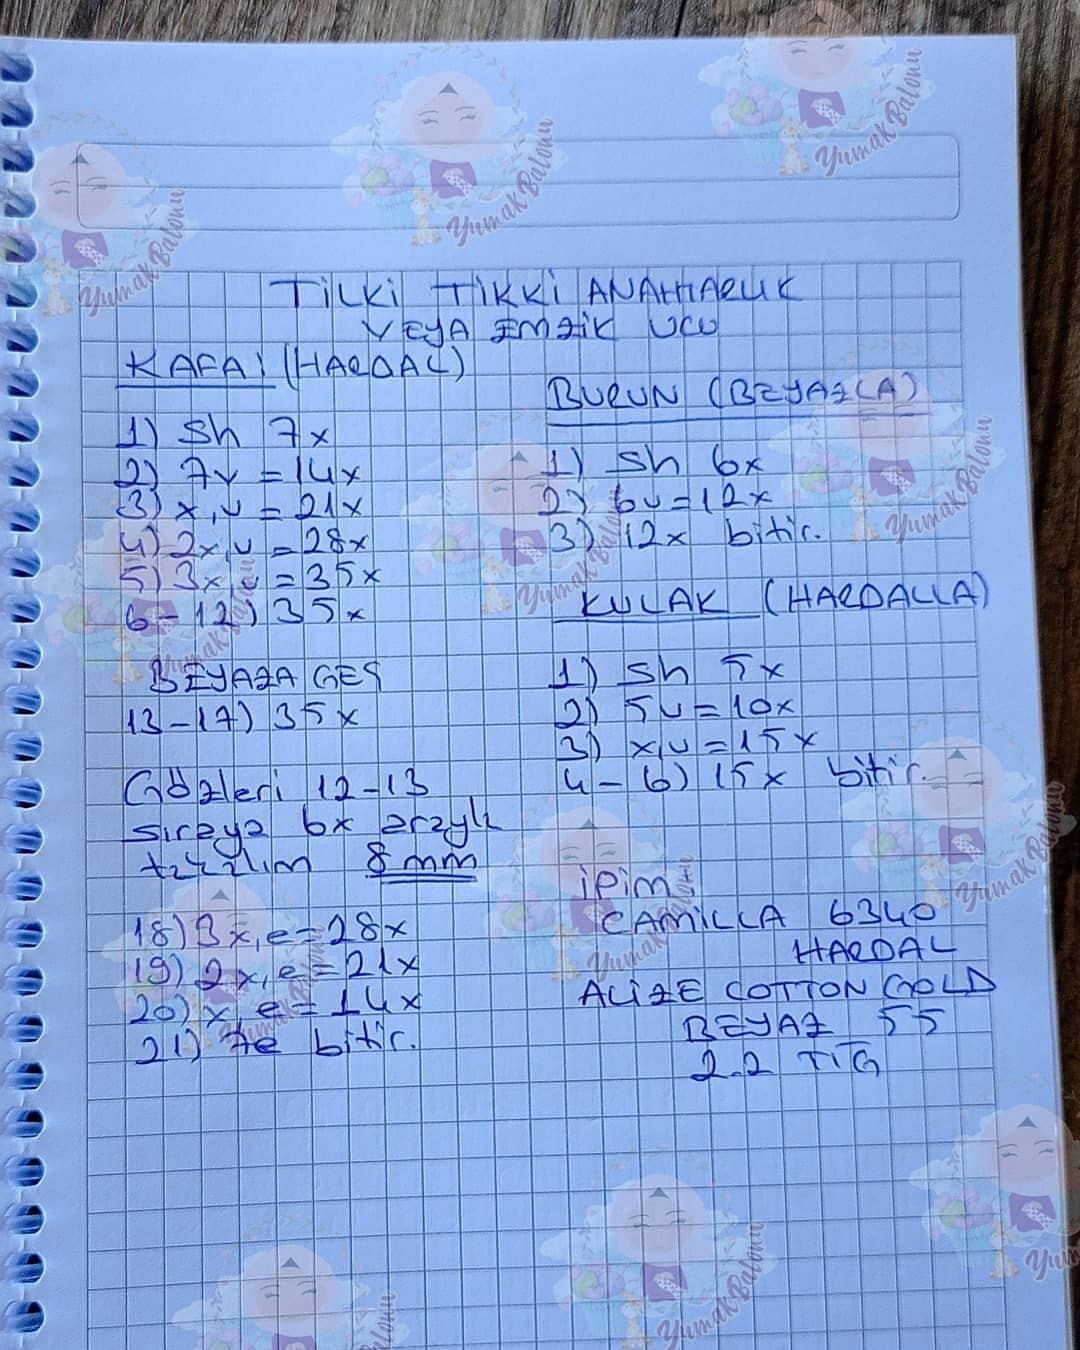 TİLKİ TİKKİ ANAHTARLIK
VEYA EMZİK UCU
KAFA: (HARDAL)
1) Sh 7x
2) 7v = 14x
3) x,v = 21x
4) 2x,v = 28x
5) 3x,v = 35x
6-12) 35x
BEYAZA GEÇ
13-17) 35x
Gözleri 12-13
sıraya 6x aralık
takalım 8mm
18) 3x,e = 28x
19) 2x,e = 21x
20) x,e = 14x
21) 7e bitir.
BURUN (BEYAZLA)
1) Sh 6x
2) 6v = 12x
3) 12x bitir.
KULAK (HARDALLA)
1) Sh 5x
2) 5v = 10x
3) x,v = 15x
4-6) 15x bitir.
İPİM
CAMİLLA 6340
HARDAL
ALİZE COTTON GOLD
BEYAZ 55
2.2 TIĞ
YumakBalonu
YumakBalonu
YumakBalonu
YumakBalonu
YumakBalonu
YumakBalonu
YumakBalonu
YumakBalonu
YumakBalonu
YumakBalonu